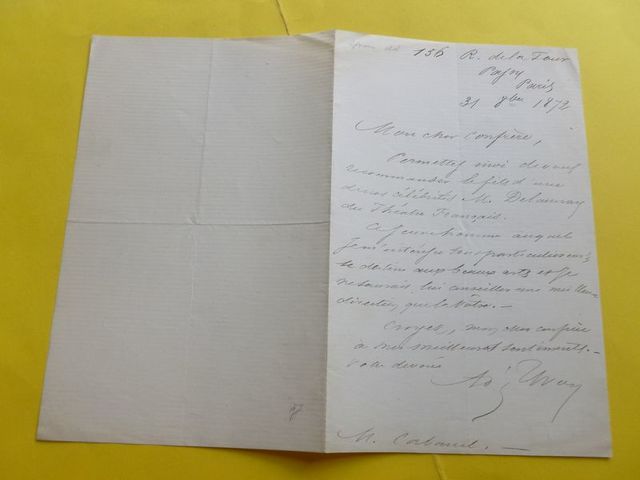 156 R. de la Tour
Passy
Paris
31 8bre 1872
Mon cher confrère,
Permettez moi de vous
recommander le fils d'une
de nos célébrités M. Delaunay
du Théâtre Français.
Ce jeune homme auquel
je m'intéresse tout particulièrement
se destine aux beaux arts et je
ne saurais lui conseiller une meilleure
direction que la Vôtre. —
Croyez, mon cher confrère
à mes meilleurs sentiments. —
votre dévoué
Ad. Yvon
M. Cabanel. —